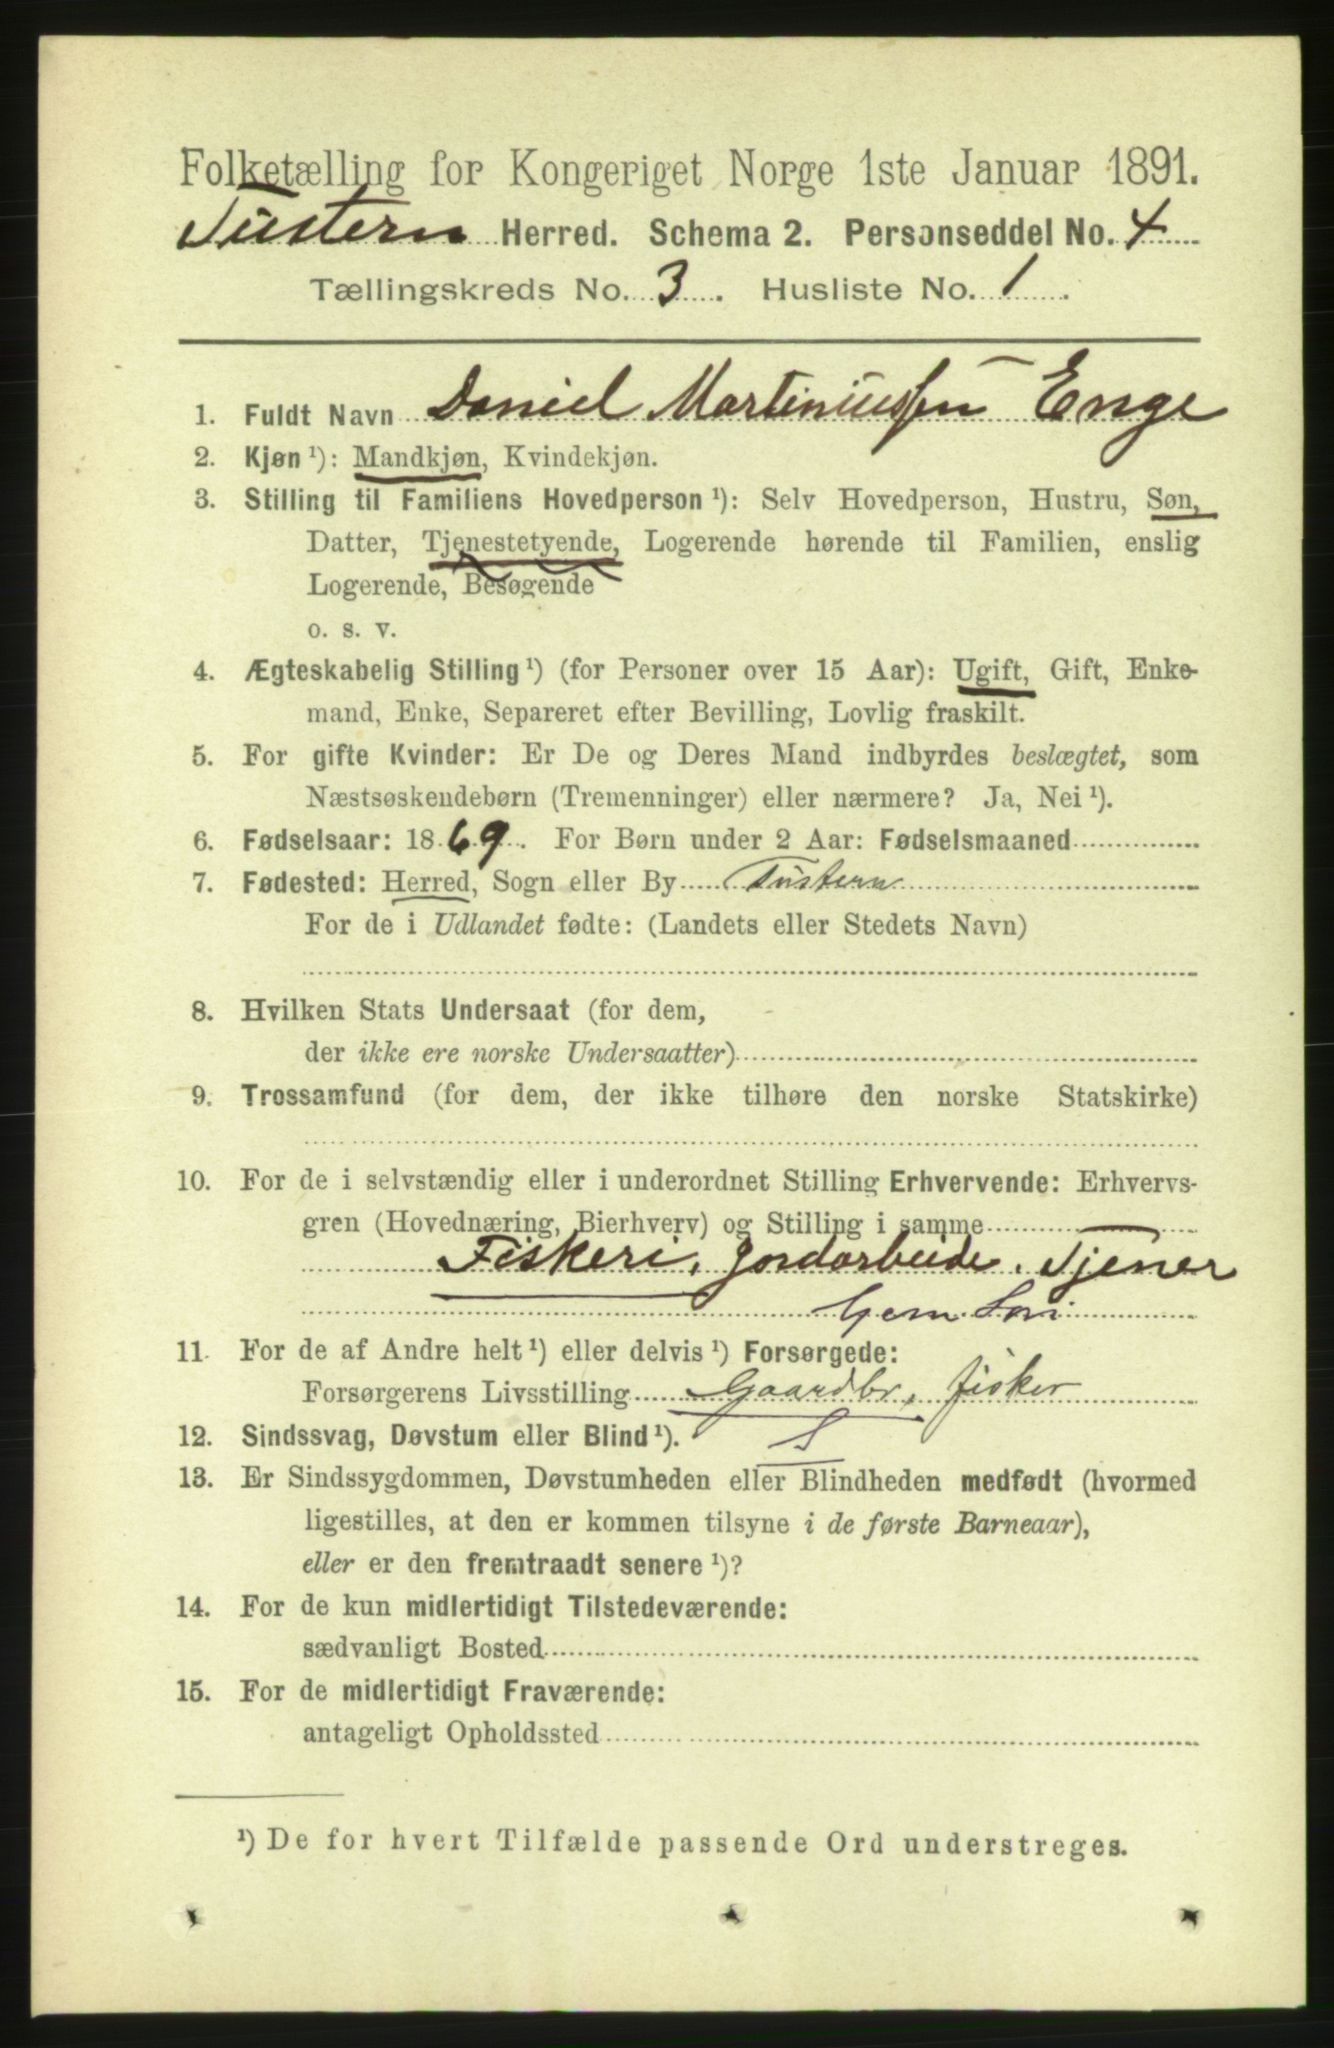 Folketælling for Kongeriget Norge 1ste Januar 1891.
Tustern Herred. Schema 2. Personseddel No. 4
Tællingskreds No. 3. Husliste No. 1.
1. Fuldt Navn Daniel Martiniussen Enge
2. Kjøn ¹): Mandkjøn, Kvindekjøn.
3. Stilling til Familiens Hovedperson ¹): Selv Hovedperson, Hustru, Søn,
Datter, Tjenestetyende, Logerende hørende til Familien, enslig
Logerende, Besøgende
o. s. v.
4. Ægteskabelig Stilling ¹) (for Personer over 15 Aar): Ugift, Gift, Enke-
mand, Enke, Separeret efter Bevilling, Lovlig fraskilt.
5. For gifte Kvinder: Er De og Deres Mand indbyrdes beslægtet, som
Næstsøskendebørn (Tremenninger) eller nærmere? Ja, Nei ¹).
6. Fødselsaar: 1869. For Børn under 2 Aar: Fødselsmaaned
7. Fødested: Herred, Sogn eller By Tustern
For de i Udlandet fødte: (Landets eller Stedets Navn)
8. Hvilken Stats Undersaat (for dem,
der ikke ere norske Undersaatter)
9. Trossamfund (for dem, der ikke tilhøre den norske Statskirke)
10. For de i selvstændig eller i underordnet Stilling Erhvervende: Erhvervs-
gren (Hovednæring, Bierhverv) og Stilling i samme
Fiskeri, Jordarbeide. Tjener
11. For de af Andre helt ¹) eller delvis ¹) Forsørgede:
Forsørgerens Livsstilling Gaardbr, fisker
12. Sindssvag, Døvstum eller Blind ¹). S
13. Er Sindssygdommen, Døvstumheden eller Blindheden medfødt (hvormed
ligestilles, at den er kommen tilsyne i de første Barneaar),
eller er den fremtraadt senere ¹)?
14. For de kun midlertidigt Tilstedeværende:
sædvanligt Bosted
15. For de midlertidigt Fraværende:
antageligt Opholdssted
¹) De for hvert Tilfælde passende Ord understreges.